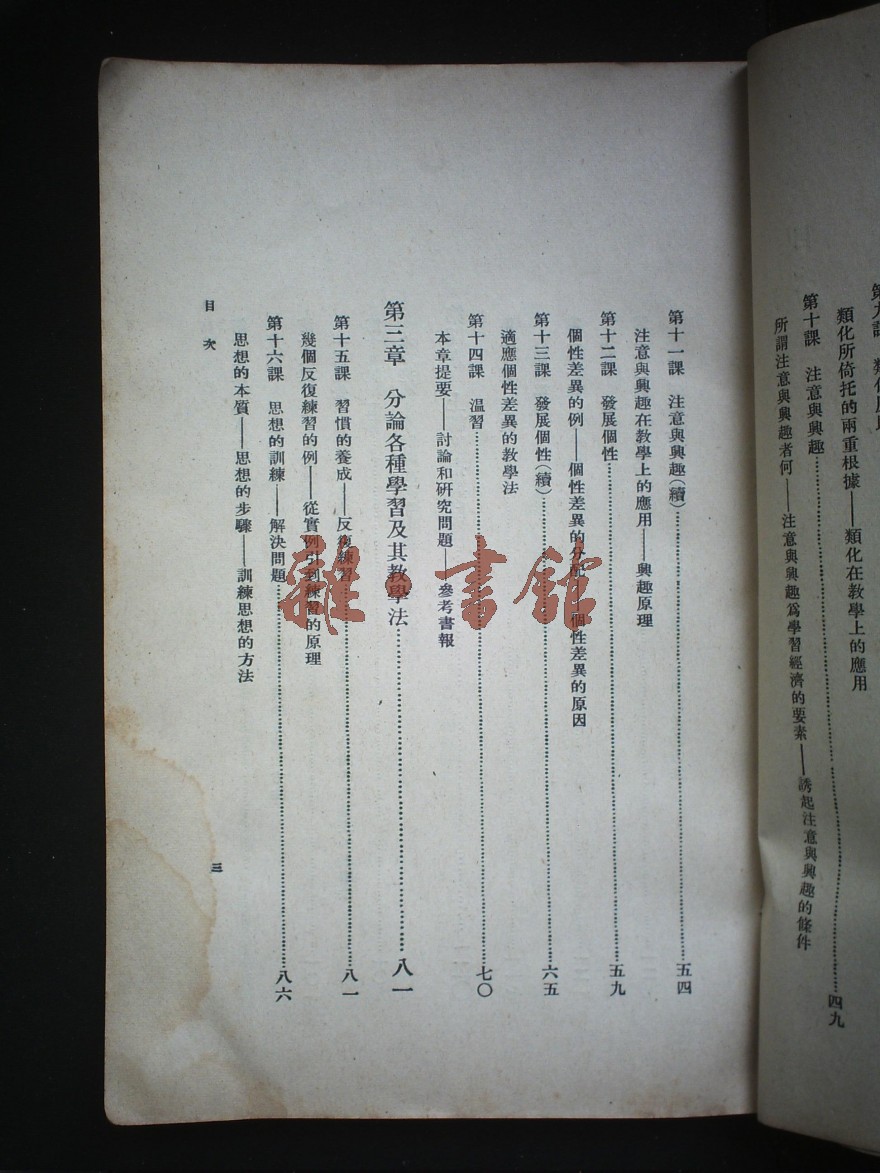 類化所倚托的兩重根據——類化在教學上的應用
第十課　注意與興趣……四九
所謂注意與興趣者何——注意與興趣爲學習經濟的要素——誘起注意與興趣的條件
第十一課　注意與興趣(續)……五四
注意與興趣在教學上的應用——興趣原理
第十二課　發展個性……五九
個性差異的例——個性差異的分配——個性差異的原因
第十三課　發展個性(續)……六五
適應個性差異的教學法
第十四課　温習……七〇
本章提要——討論和研究問題——參考書報
第三章　分論各種學習及其教學法……八一
第十五課　習慣的養成——反復練習……八一
幾個反復練習的例——從實例引到練習的原理
第十六課　思想的訓練——解決問題……八六
思想的本質——思想的步驟——訓練思想的方法
目次
三
雜·書館